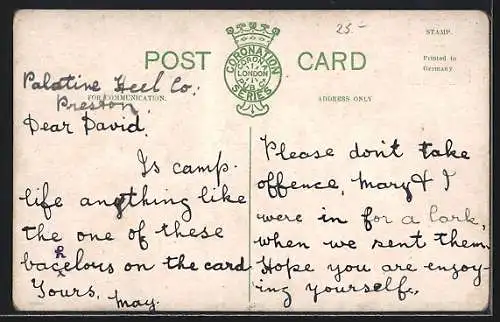 25.-
STAMP.
POST CARD
CORONATION
CORONA
LONDON
SERIES
Printed in
Germany
Palatine Heel Co.
FOR COMMUNICATION.
ADDRESS ONLY
Preston.
Dear David.
Is camp-
life anything like
the one of these
bachelous on the card
Yours.
May.
Please don't take
offence, Mary & I
were in for a lark,
when we sent them
Hope you are enjoy-
ing yourself.